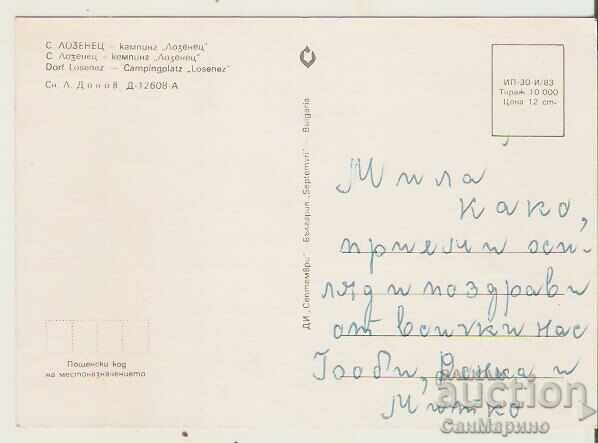 С. ЛОЗЕНЕЦ – кампинг „Лозенец"
С. Лозенец – кемпинг „Лозенец"
Dorf Losenez — Campingplatz „Losenez"
Сн. Л. Донов Д-12608-А
ДИ „Септември" - България „Septemvri" - Bulgaria
ИП-30-И/83
Тираж 10 000
Цена 12 ст.
Мила
како,
приеми
ляд и поздрави
от всички нас
и
Митко
Пощенски код
на местоназначението
auction
СанМарино